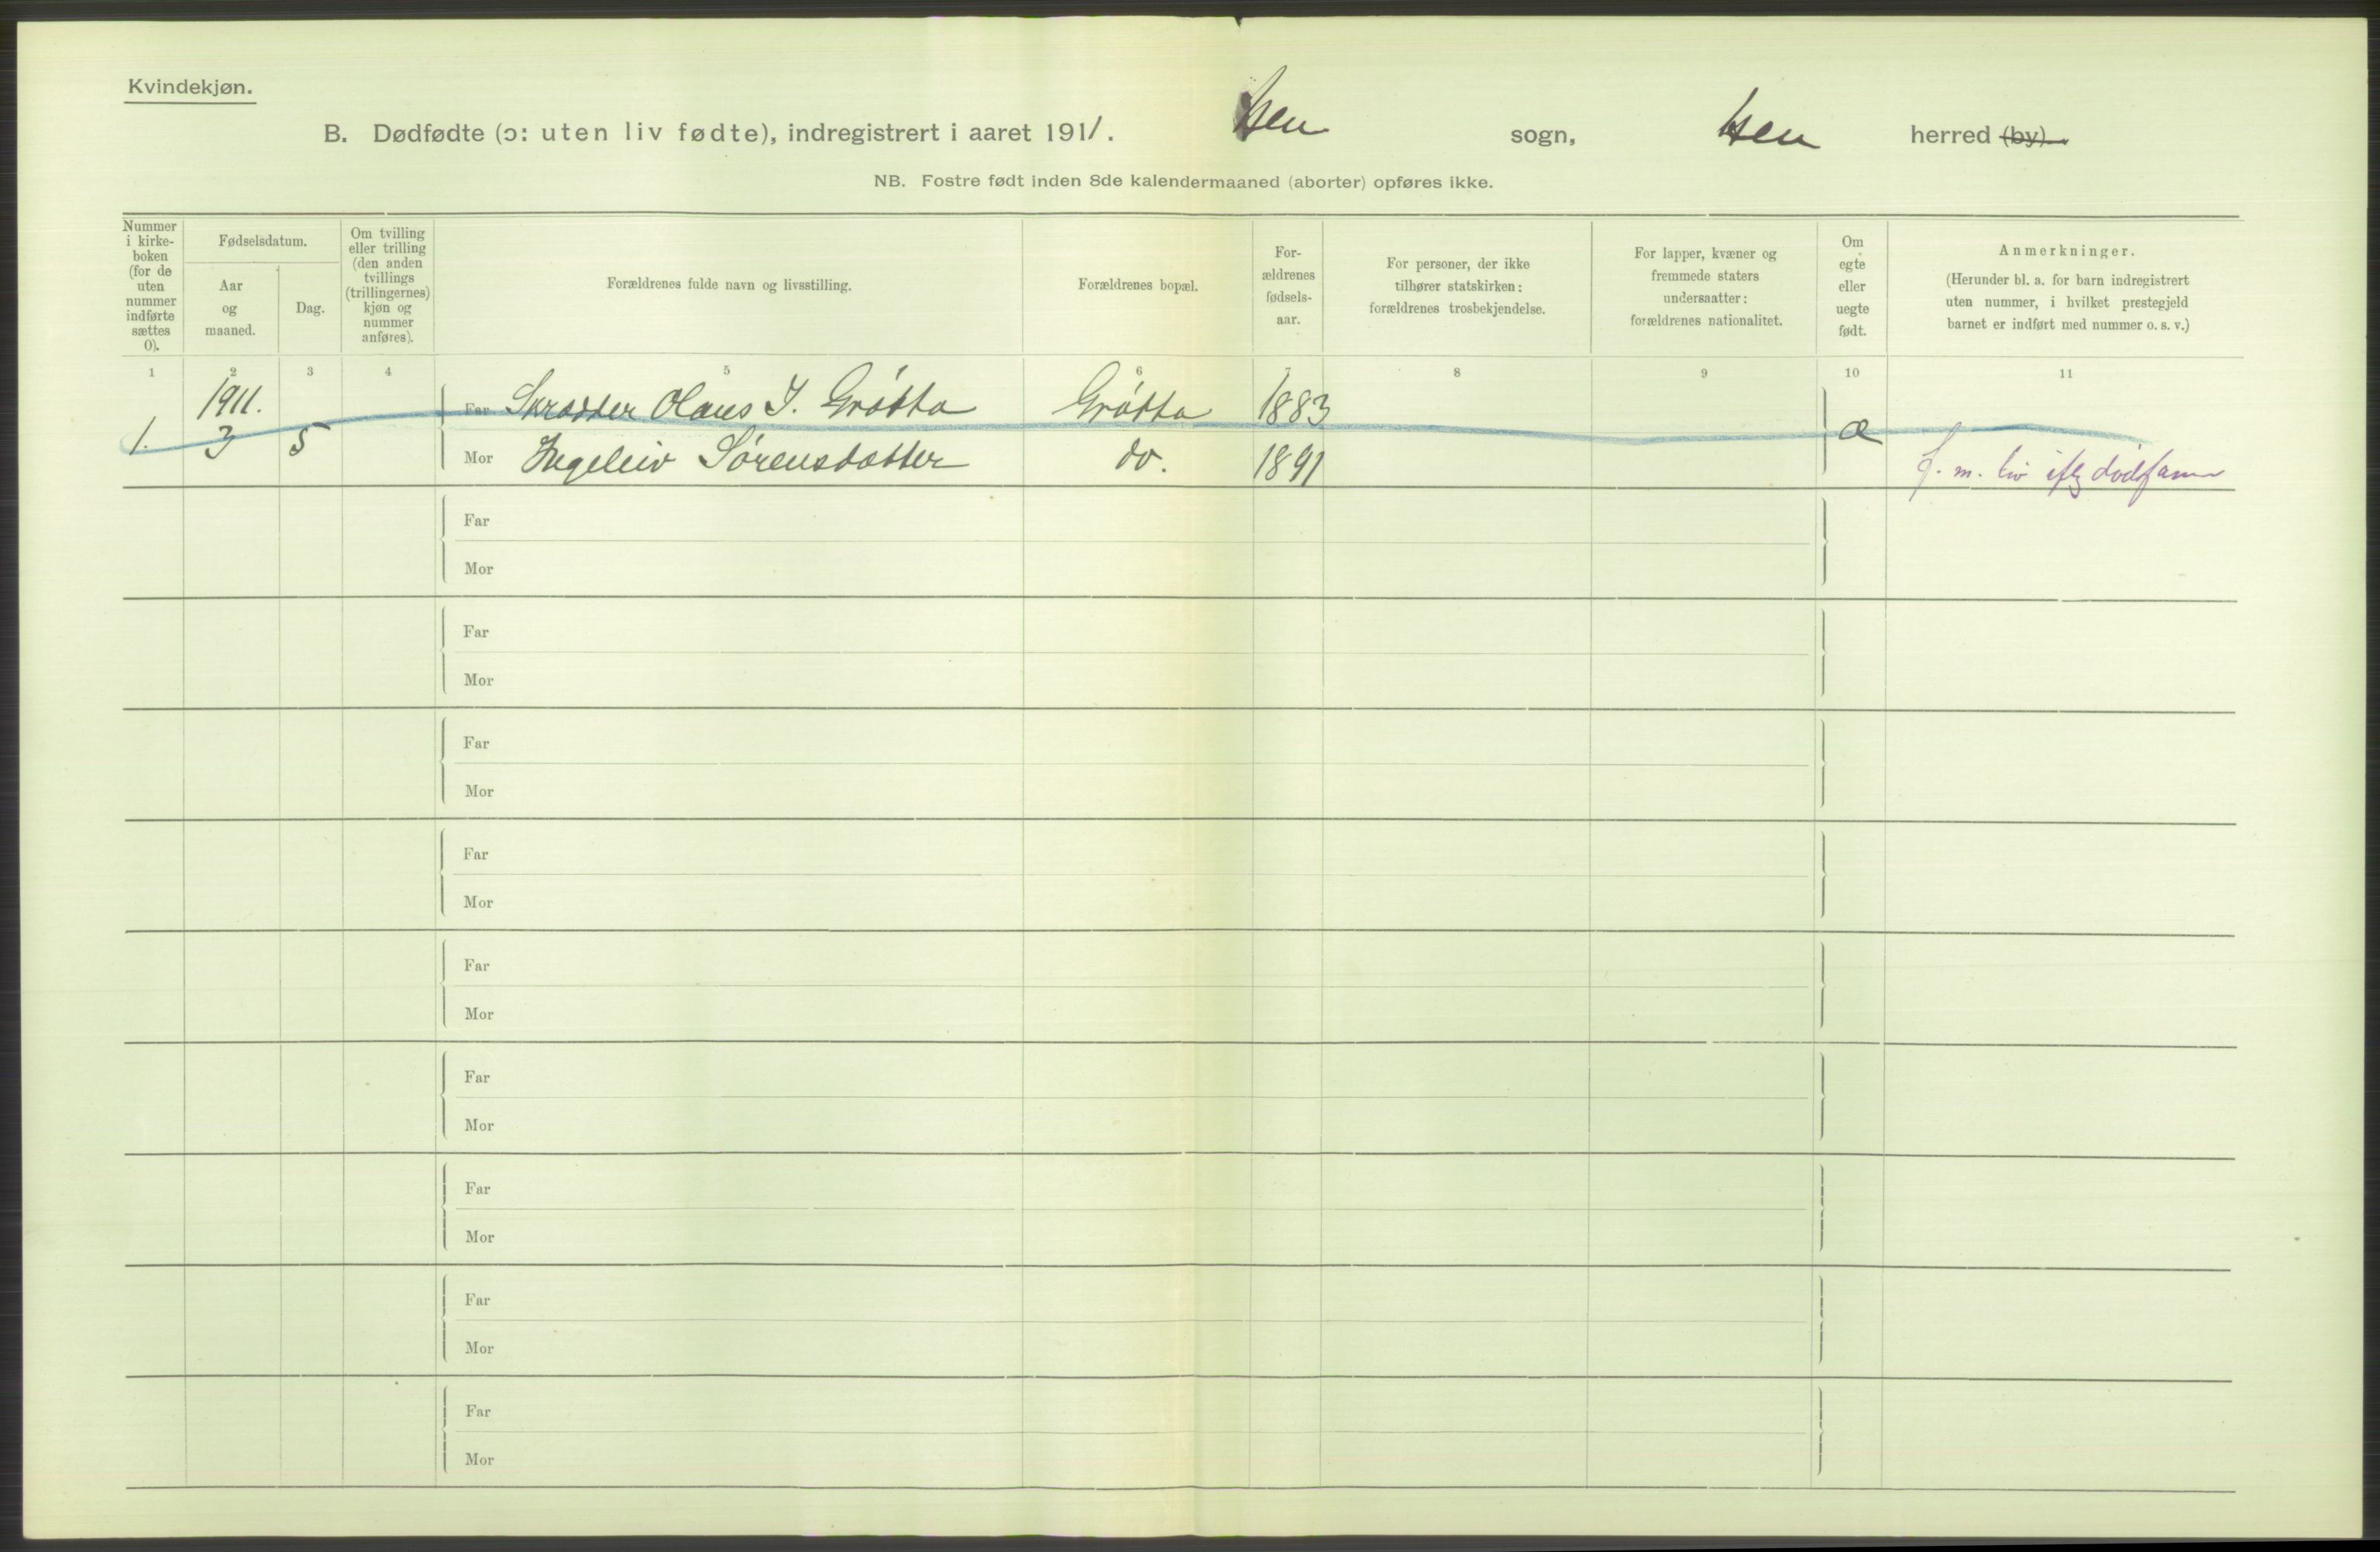 Kvindekjøn.
B. Dødfødte (ɔ: uten liv fødte), indregistrert i aaret 1911. Hen sogn, Hen herred (by).
NB. Fostre født inden 8de kalendermaaned (aborter) opføres ikke.
Nummer
i kirke-
boken
(for de
uten
nummer
indførte
sættes
0).
Fødselsdatum.
Aar
og
maaned.
Dag.
Om tvilling
eller trilling
(den anden
tvillings
(trillingernes)
kjøn og
nummer
anføres).
Forældrenes fulde navn og livsstilling.
Forældrenes bopæl.
For-
ældrenes
fødsels-
aar.
For personer, der ikke
tilhører statskirken:
forældrenes trosbekjendelse.
For lapper, kvæner og
fremmede staters
undersaatter:
forældrenes nationalitet.
Om
egte
eller
uegte
født.
Anmerkninger.
(Herunder bl. a. for barn indregistrert
uten nummer, i hvilket prestegjeld
barnet er indført med nummer o. s. v.)
1 2 3 4 5 6 7 8 9 10 11
1911.
Far Skrædder Olaus I. Grøtta Grøtta 1883
1. 3 5 æ
Mor Ingeleiv Sørensdatter do. 1891
f. m. liv iflg dødsfanm
Far
Mor
Far
Mor
Far
Mor
Far
Mor
Far
Mor
Far
Mor
Far
Mor
Far
Mor
Far
Mor